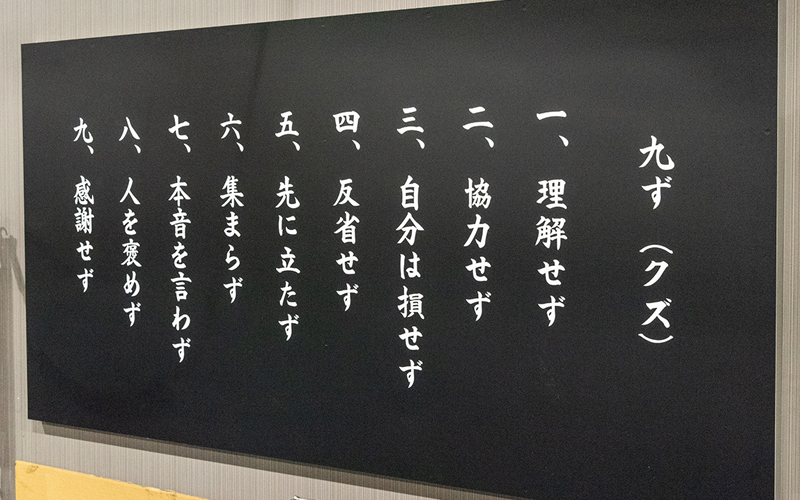 九ず（クズ）
一、理解せず
二、協力せず
三、自分は損せず
四、反省せず
五、先に立たず
六、集まらず
七、本音を言わず
八、人を褒めず
九、感謝せず